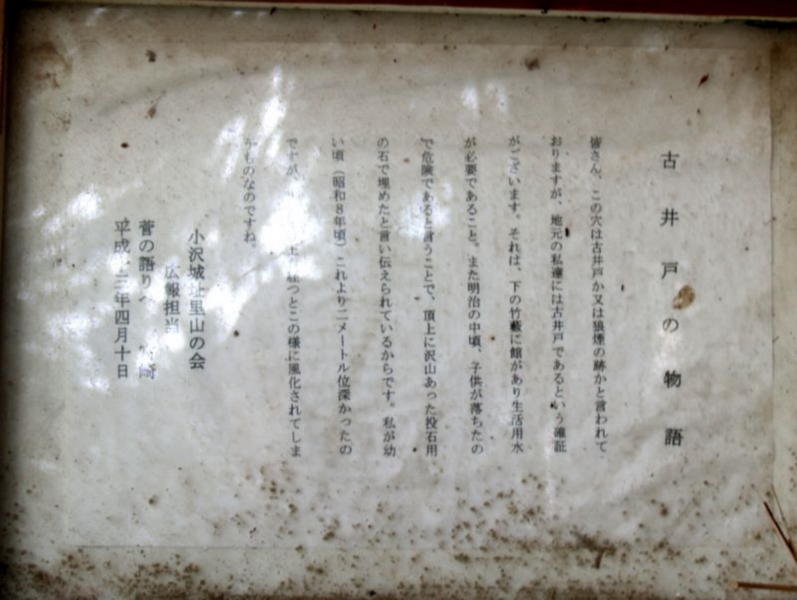 古井戸の物語
皆さん、この穴は古井戸か又は狼煙の跡かと言われて
おりますが、地元の私達には古井戸であるという確証
がございます。それは、下の竹藪に館があり生活用水
が必要であること。また明治の中頃、子供が落ちたの
で危険であると言うことで、頂上に沢山あった投石用
の石で埋めたと言い伝えられているからです。私が幼
い頃（昭和８年頃）これより二メートル位深かったの
ですが、経つとこの様に風化されてしま
うものなのですね。
小沢城址里山の会
広報担当
菅の語り
平成十三年四月十日